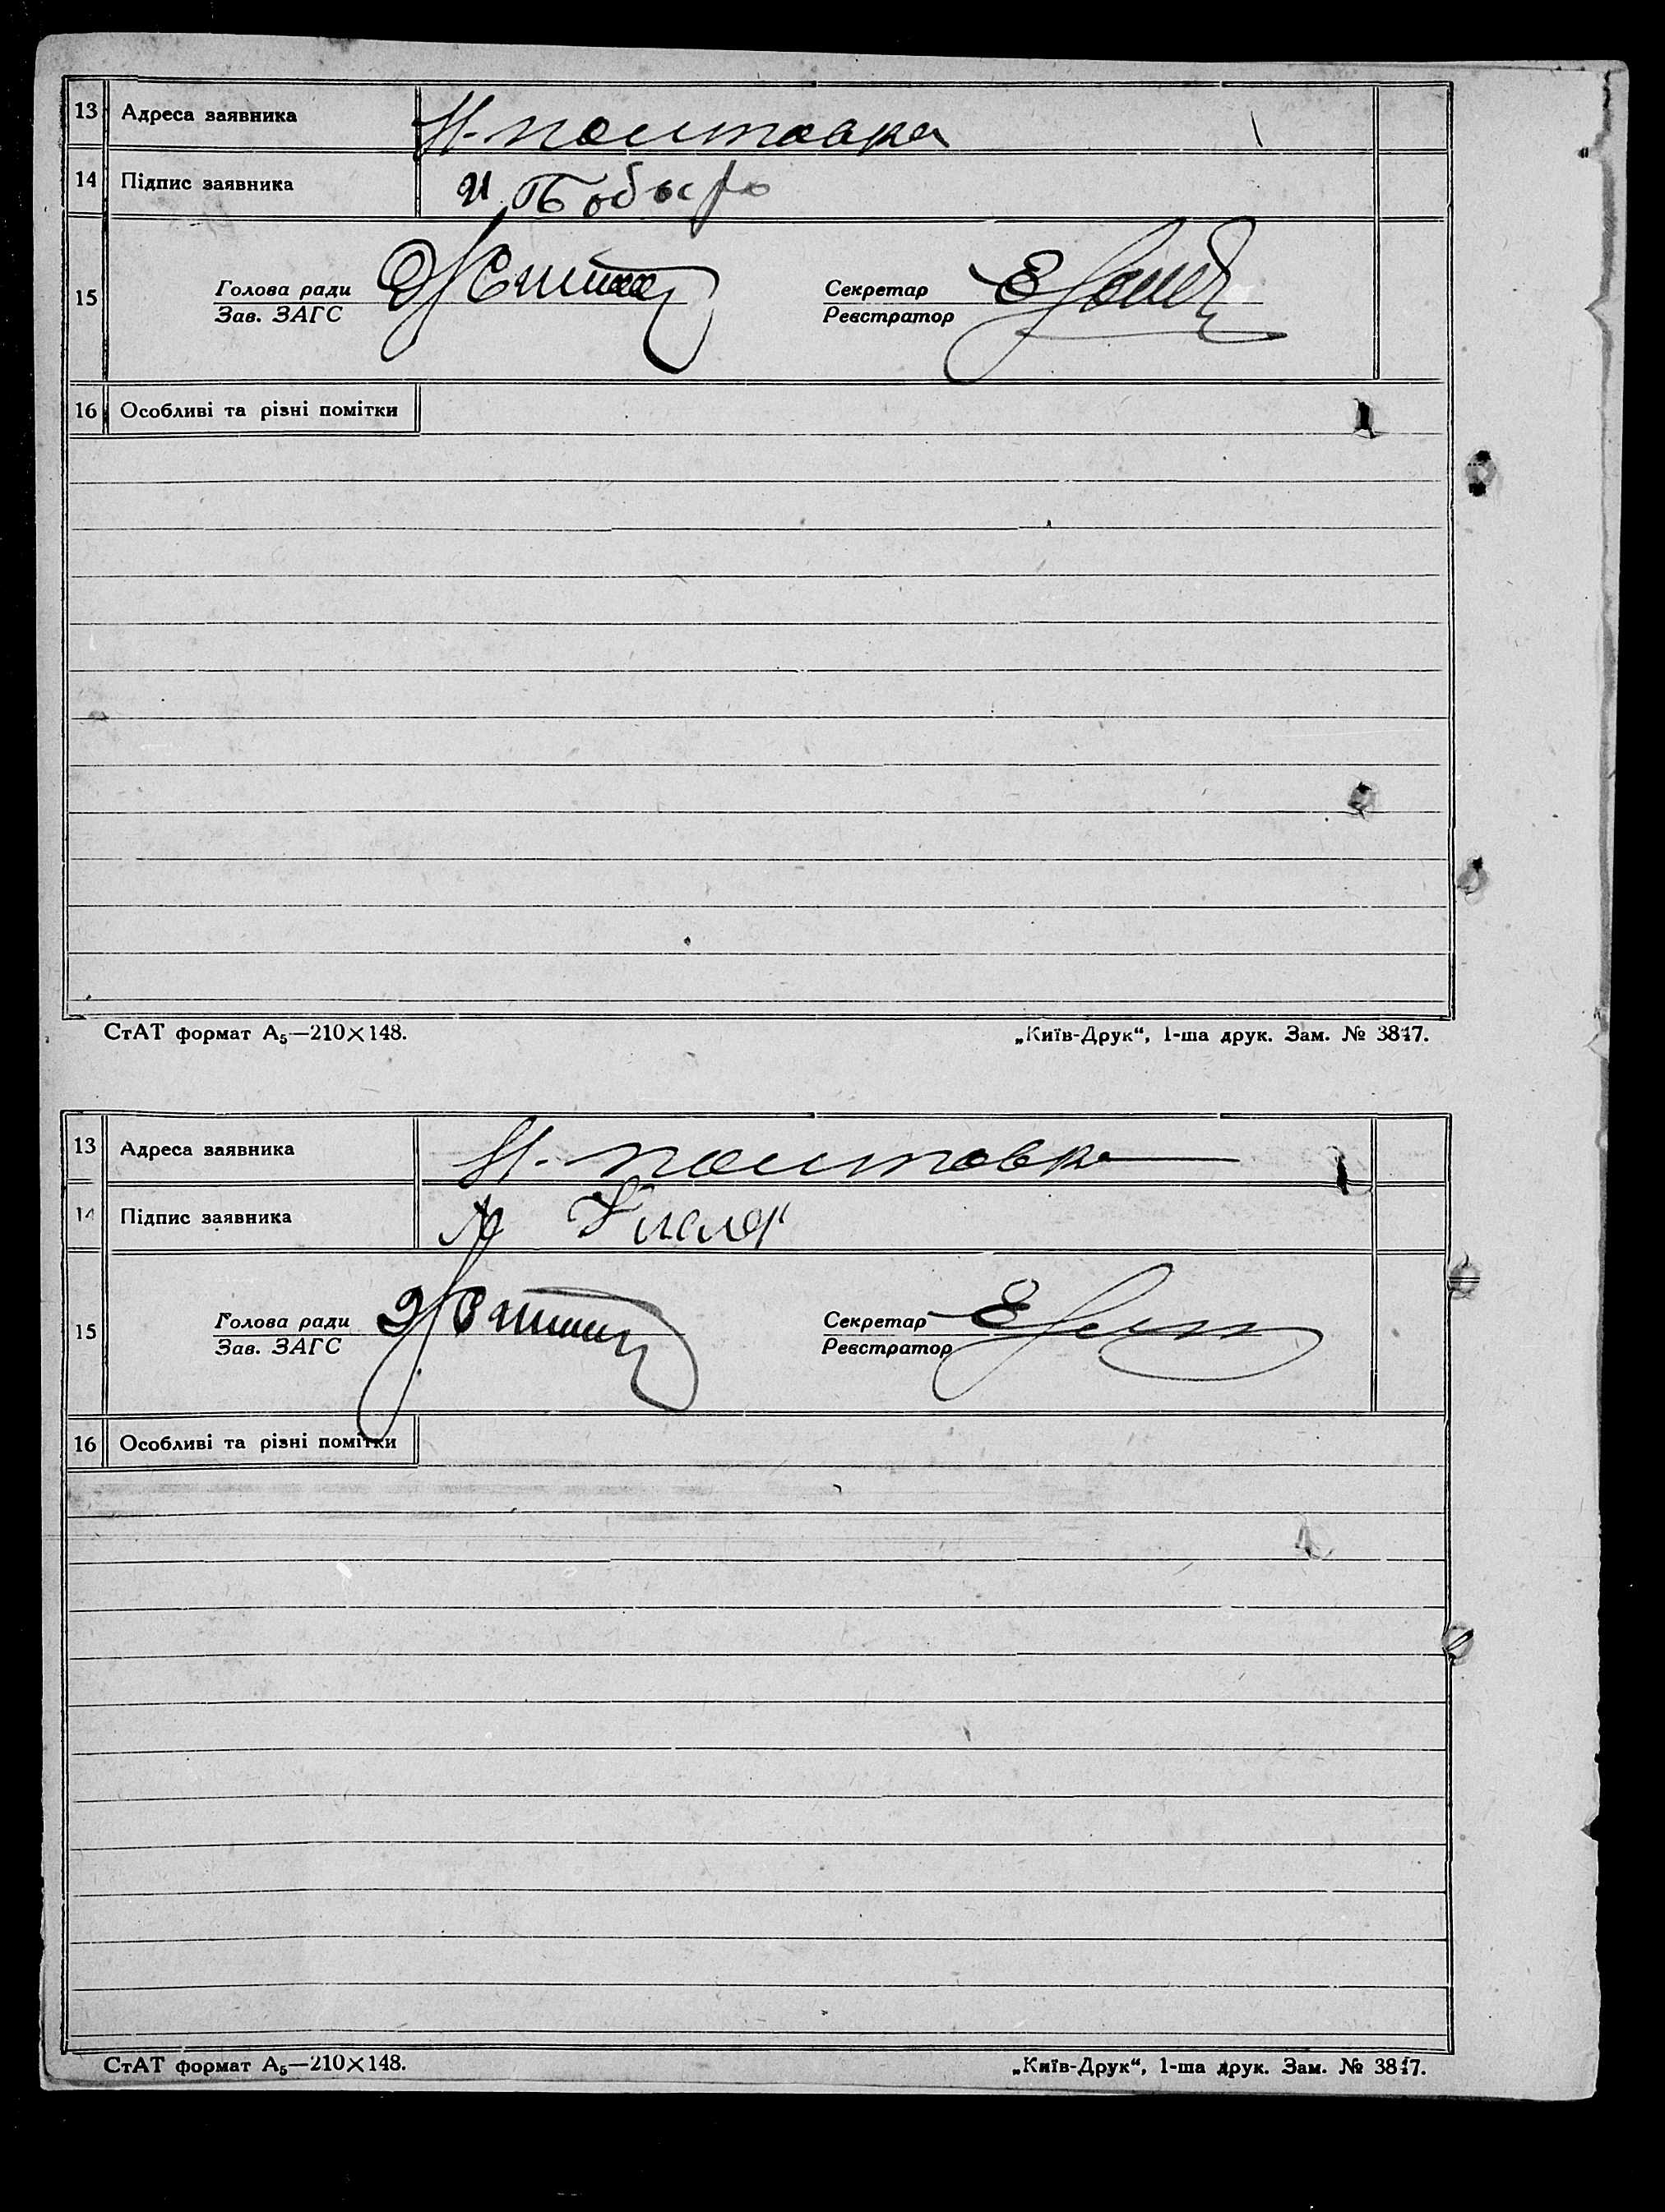 13 Адреса заявника Н-полтавка
14 Підпис заявника
15 Голова ради Секретар
Зав. ЗАГС Реєстратор
16 Особливі та різні помітки
СтАТ формат А5—210×148. „Київ-Друк“, 1-ша друк. Зам. № 3817.
13 Адреса заявника Н-полтавка
14 Підпис заявника
15 Голова ради Секретар
Зав. ЗАГС Реєстратор
16 Особливі та різні помітки
СтАТ формат А5—210×148. „Київ-Друк“, 1-ша друк. Зам. № 3817.